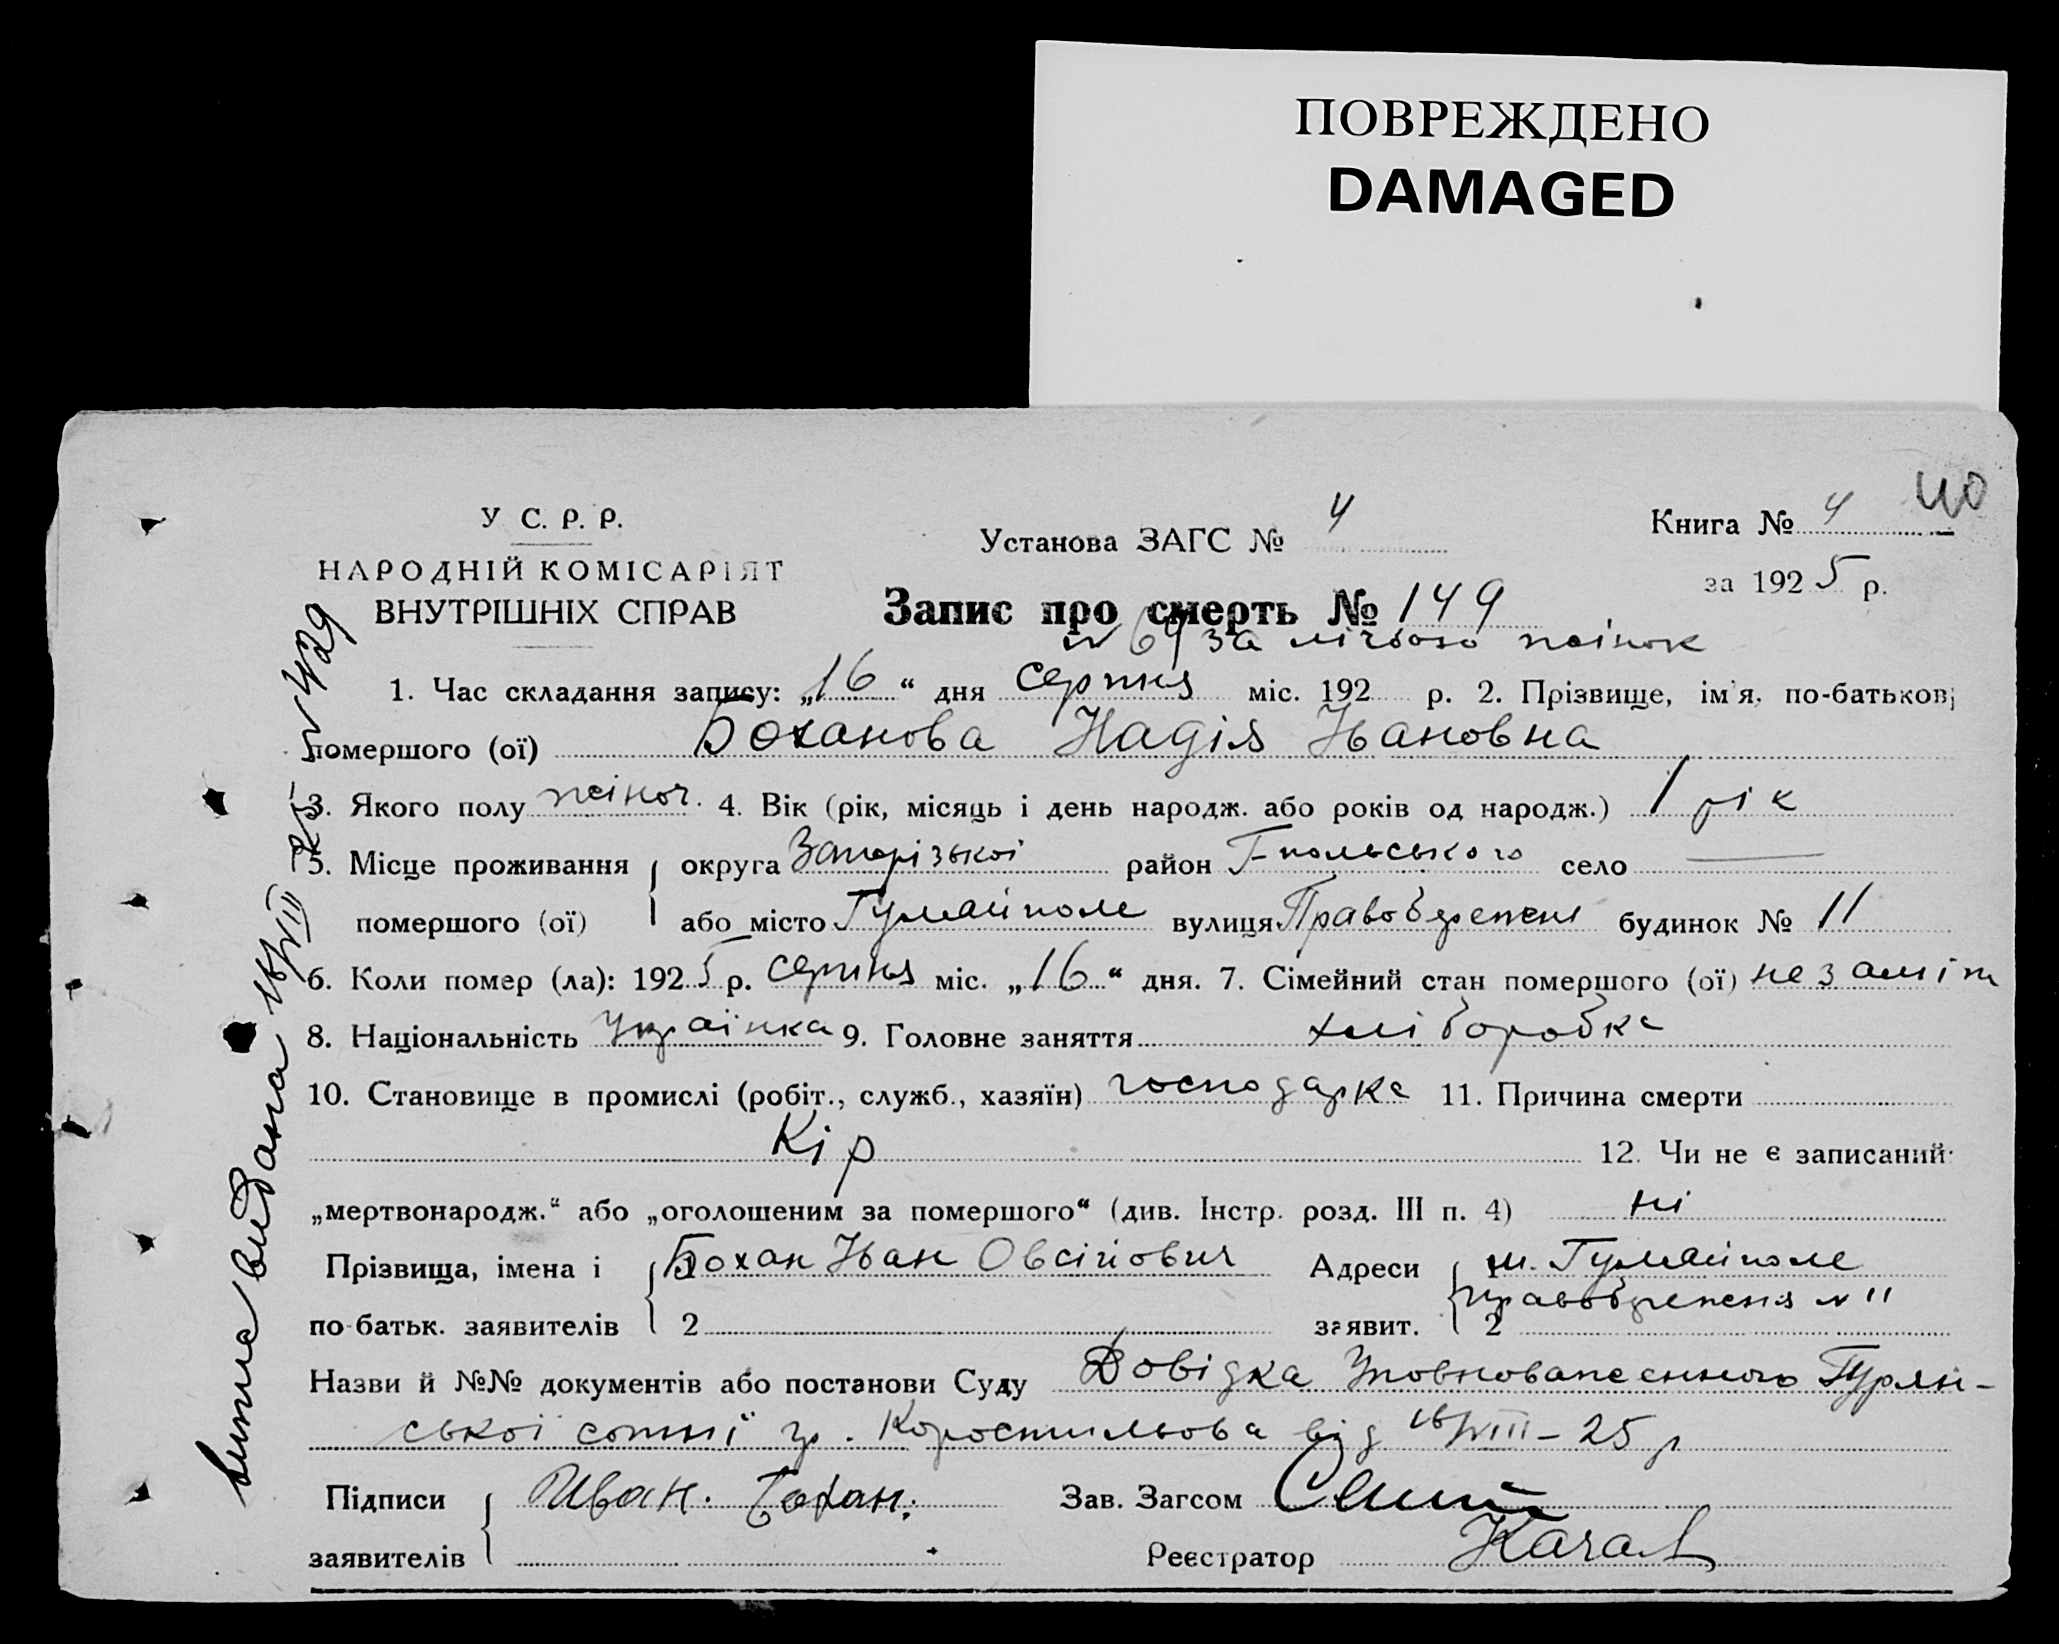 ПОВРЕЖДЕНО
DAMAGED
40
У С. Р. Р.
НАРОДНІЙ КОМІСАРІЯТ
ВНУТРІШНІХ СПРАВ
Установа ЗАГС № 4
Книга № 4
за 1925 р.
Запис про смерть № 149
№ 64 за лічбою жінок
1. Час складання запису: „16“ дня серпня міс. 192 р. 2. Прізвище, ім'я, по-батькові
помершого (ої) Боханова Надія Ивановна
3. Якого полу жіноч. 4. Вік (рік, місяць і день народж. або років од народж.) 1 рік
5. Місце проживання округа Запорізької район Г-польського село —
помершого (ої) або місто Гуляйполе вулиця Правобережня будинок № 11
6. Коли помер (ла): 1925 р. серпня міс. „16“ дня. 7. Сімейний стан помершого (ої) незаміж
8. Національність Українка 9. Головне заняття хліборобка
10. Становище в промислі (робіт., служб., хазяїн) господарка 11. Причина смерти
Кір 12. Чи не є записаний
„мертвонародж.“ або „оголошеним за помершого“ (див. Інстр. розд. III п. 4) ні
Прізвища, імена і 1 Бохан Иван Овсійович Адреси 1 м. Гуляйполе
правобережня № 11
по-батьк. заявителів 2 заявит. 2
Назви й №№ документів або постанови Суду Довідка Уповноваженного Гурян-
ської сотні гр. Коростильова від 16/VIII-25 р
Підписи Иван. Бохан. Зав. Загсом
заявителів Реєстратор
видана 16/VIII 25 № 429